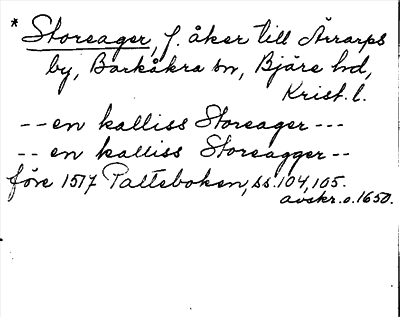 * Storeager, f. åker till Ärrarps
by, Barkåkra sn, Bjäre hd,
Krist. l.
-- en kalliss Storeager ---
-- en kalliss Storeagger --
före 1517 Palteboken, ss. 104, 105.
avskr. o. 1650.